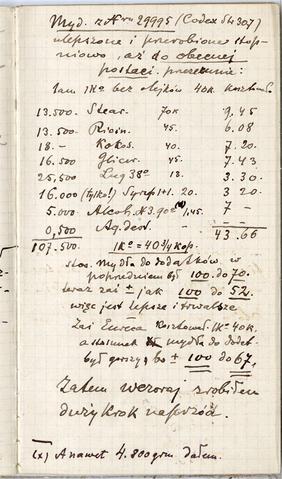 Myd. z Nru 29995 (Codex St 307)
ulepszone i przerobione stop-
niowo, aż do obecnej
postaci
1am 1Ko bez olejków 40k kosztow.
13.500. Stear. 70k 9,45
13.500 Ricin. 45. 6.08
18.- Kokos. 40. 7.20
16.500 Glicer. 45. 7.43
25,500 Lug 38° 13. 3.30
16.000 (tylko!) Syrop 1+1. 20. 3 20
5.000 Alcoh. N3.90° (x) 1,45. 7 -
0,500 Aq. des. - -
107.500. 1Ko = 40 3/4 kop. 43.66
stos. mydła do dodatków, w
poprzednim był 100 do 70.
teraz zaś ± jak 100 do 52.
więc jest lepsze i trwalsze
Zaś Eureca kosztował 1Ko 40k.
a stosunek mydła do dodat.
był gorszy, bo ± 100 do 67,
Zatem wczoraj zrobiłem
duży krok naprzód.
(x) A nawet 4.800 grm dałem.